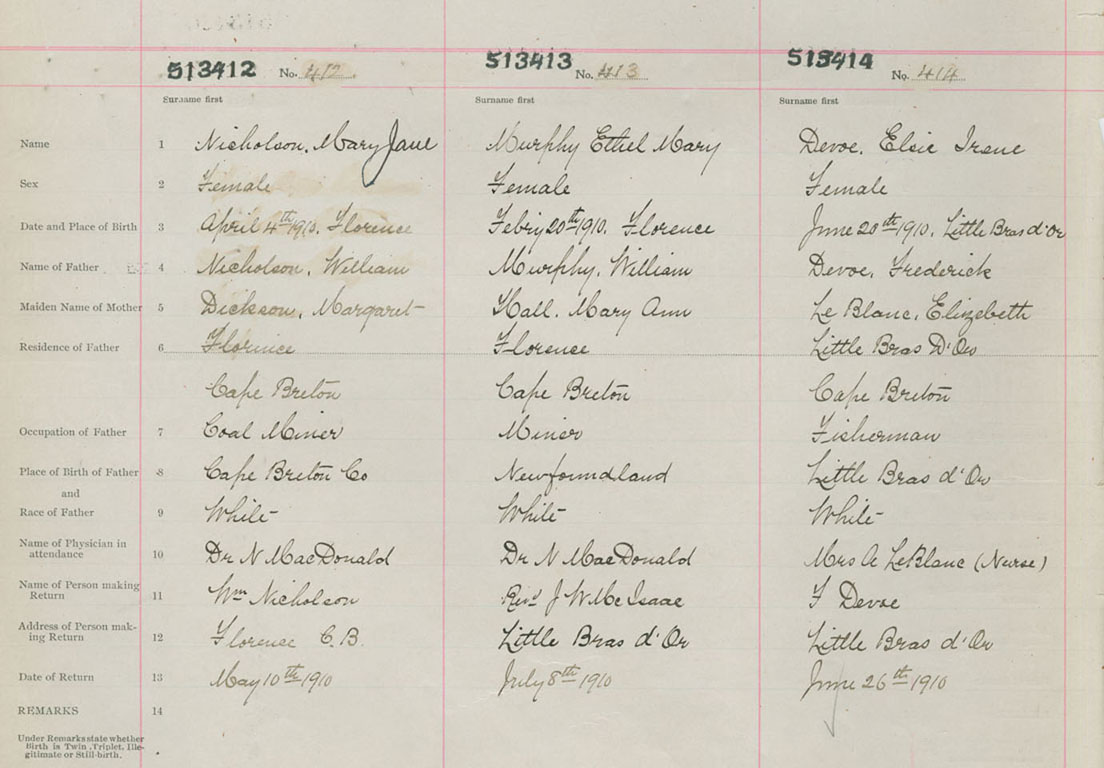 513412 No. 412 513413 No. 413 513414 No. 414
Surname first Surname first Surname first
Name 1 Nicholson, Mary Jane Murphy Ethel Mary Devoe, Elsie Irene
Sex 2 Female Female Female
Date and Place of Birth 3 April 4th 1910. Florence Febry 20th 1910. Florence June 20th 1910. Little Bras d'Or
Name of Father 4 Nicholson, William Murphy, William Devoe, Frederick
Maiden Name of Mother 5 Dickson, Margaret Hall, Mary Ann Le Blanc, Elizebeth
Residence of Father 6 Florence Florence Little Bras D'Or
Cape Breton Cape Breton Cape Breton
Occupation of Father 7 Coal Miner Miner Fisherman
Place of Birth of Father 8 Cape Breton Co Newfoundland Little Bras d'Or
and
Race of Father 9 White White White
Name of Physician in
attendance 10 Dr N MacDonald Dr N MacDonald Mrs A LeBlanc (Nurse)
Name of Person making
Return 11 Wm Nicholson Revd J W McIsaac F Devoe
Address of Person mak-
ing Return 12 Florence C.B. Little Bras d'Or Little Bras d'Or
Date of Return 13 May 10th 1910 July 8th 1910 June 26th 1910
REMARKS 14
Under Remarks state whether
Birth is Twin, Triplet, Ille-
gitimate or Still-birth.